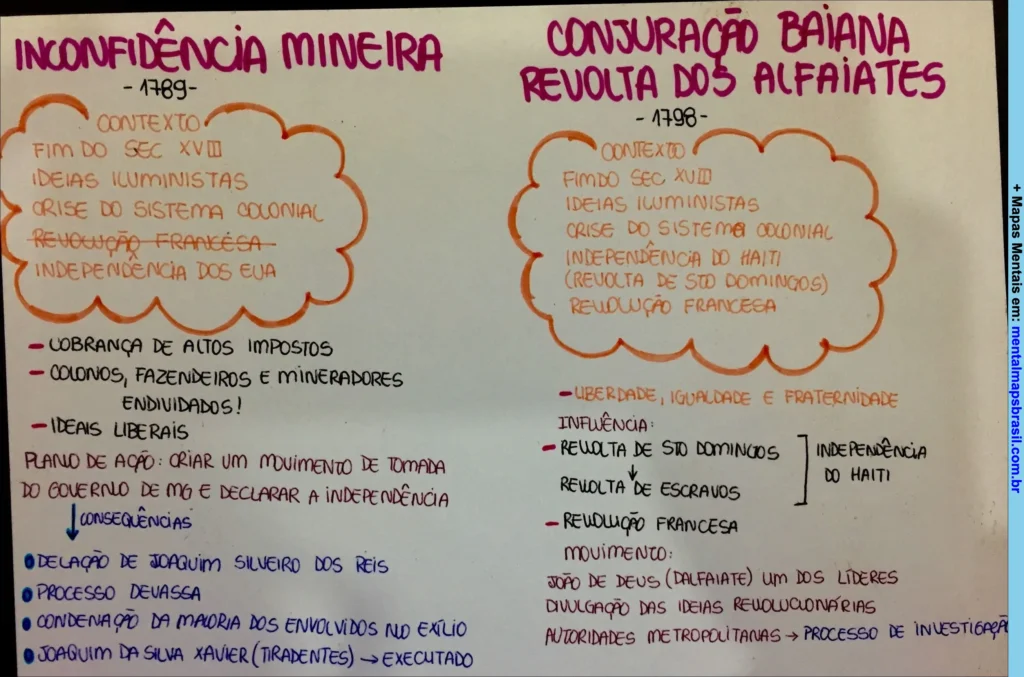 INCONFIDÊNCIA MINEIRA
- 1789 -
CONTEXTO
FIM DO SEC XVIII
IDEIAS ILUMINISTAS
CRISE DO SISTEMA COLONIAL
REVOLUÇÃO FRANCESA
INDEPENDÊNCIA DOS EUA
- COBRANÇA DE ALTOS IMPOSTOS
- COLONOS, FAZENDEIROS E MINERADORES
ENDIVIDADOS!
- IDEAIS LIBERAIS
PLANO DE AÇÃO: CRIAR UM MOVIMENTO DE TOMADA
DO GOVERNO DE MG E DECLARAR A INDEPENDÊNCIA
↓ CONSEQUÊNCIAS
• DELAÇÃO DE JOAQUIM SILVEIRO DOS REIS
• PROCESSO DEVASSA
• CONDENAÇÃO DA MAIORIA DOS ENVOLVIDOS NO EXÍLIO
• JOAQUIM DA SILVA XAVIER (TIRADENTES) → EXECUTADO
CONJURAÇÃO BAIANA
REVOLTA DOS ALFAIATES
- 1798 -
CONTEXTO
FIM DO SEC XVIII
IDEIAS ILUMINISTAS
CRISE DO SISTEMA COLONIAL
INDEPENDÊNCIA DO HAITI
(REVOLTA DE STO DOMINGOS)
REVOLUÇÃO FRANCESA
- LIBERDADE, IGUALDADE E FRATERNIDADE
INFLUÊNCIA:
- REVOLTA DE STO DOMINGOS
↓
REVOLTA DE ESCRAVOS
INDEPENDÊNCIA
DO HAITI
- REVOLUÇÃO FRANCESA
MOVIMENTO:
JOÃO DE DEUS (DALFAIATE) UM DOS LÍDERES
DIVULGAÇÃO DAS IDEIAS REVOLUCIONÁRIAS
AUTORIDADES METROPOLITANAS → PROCESSO DE INVESTIGAÇÃO
+ Mapas Mentais em: mentalmapsbrasil.com.br